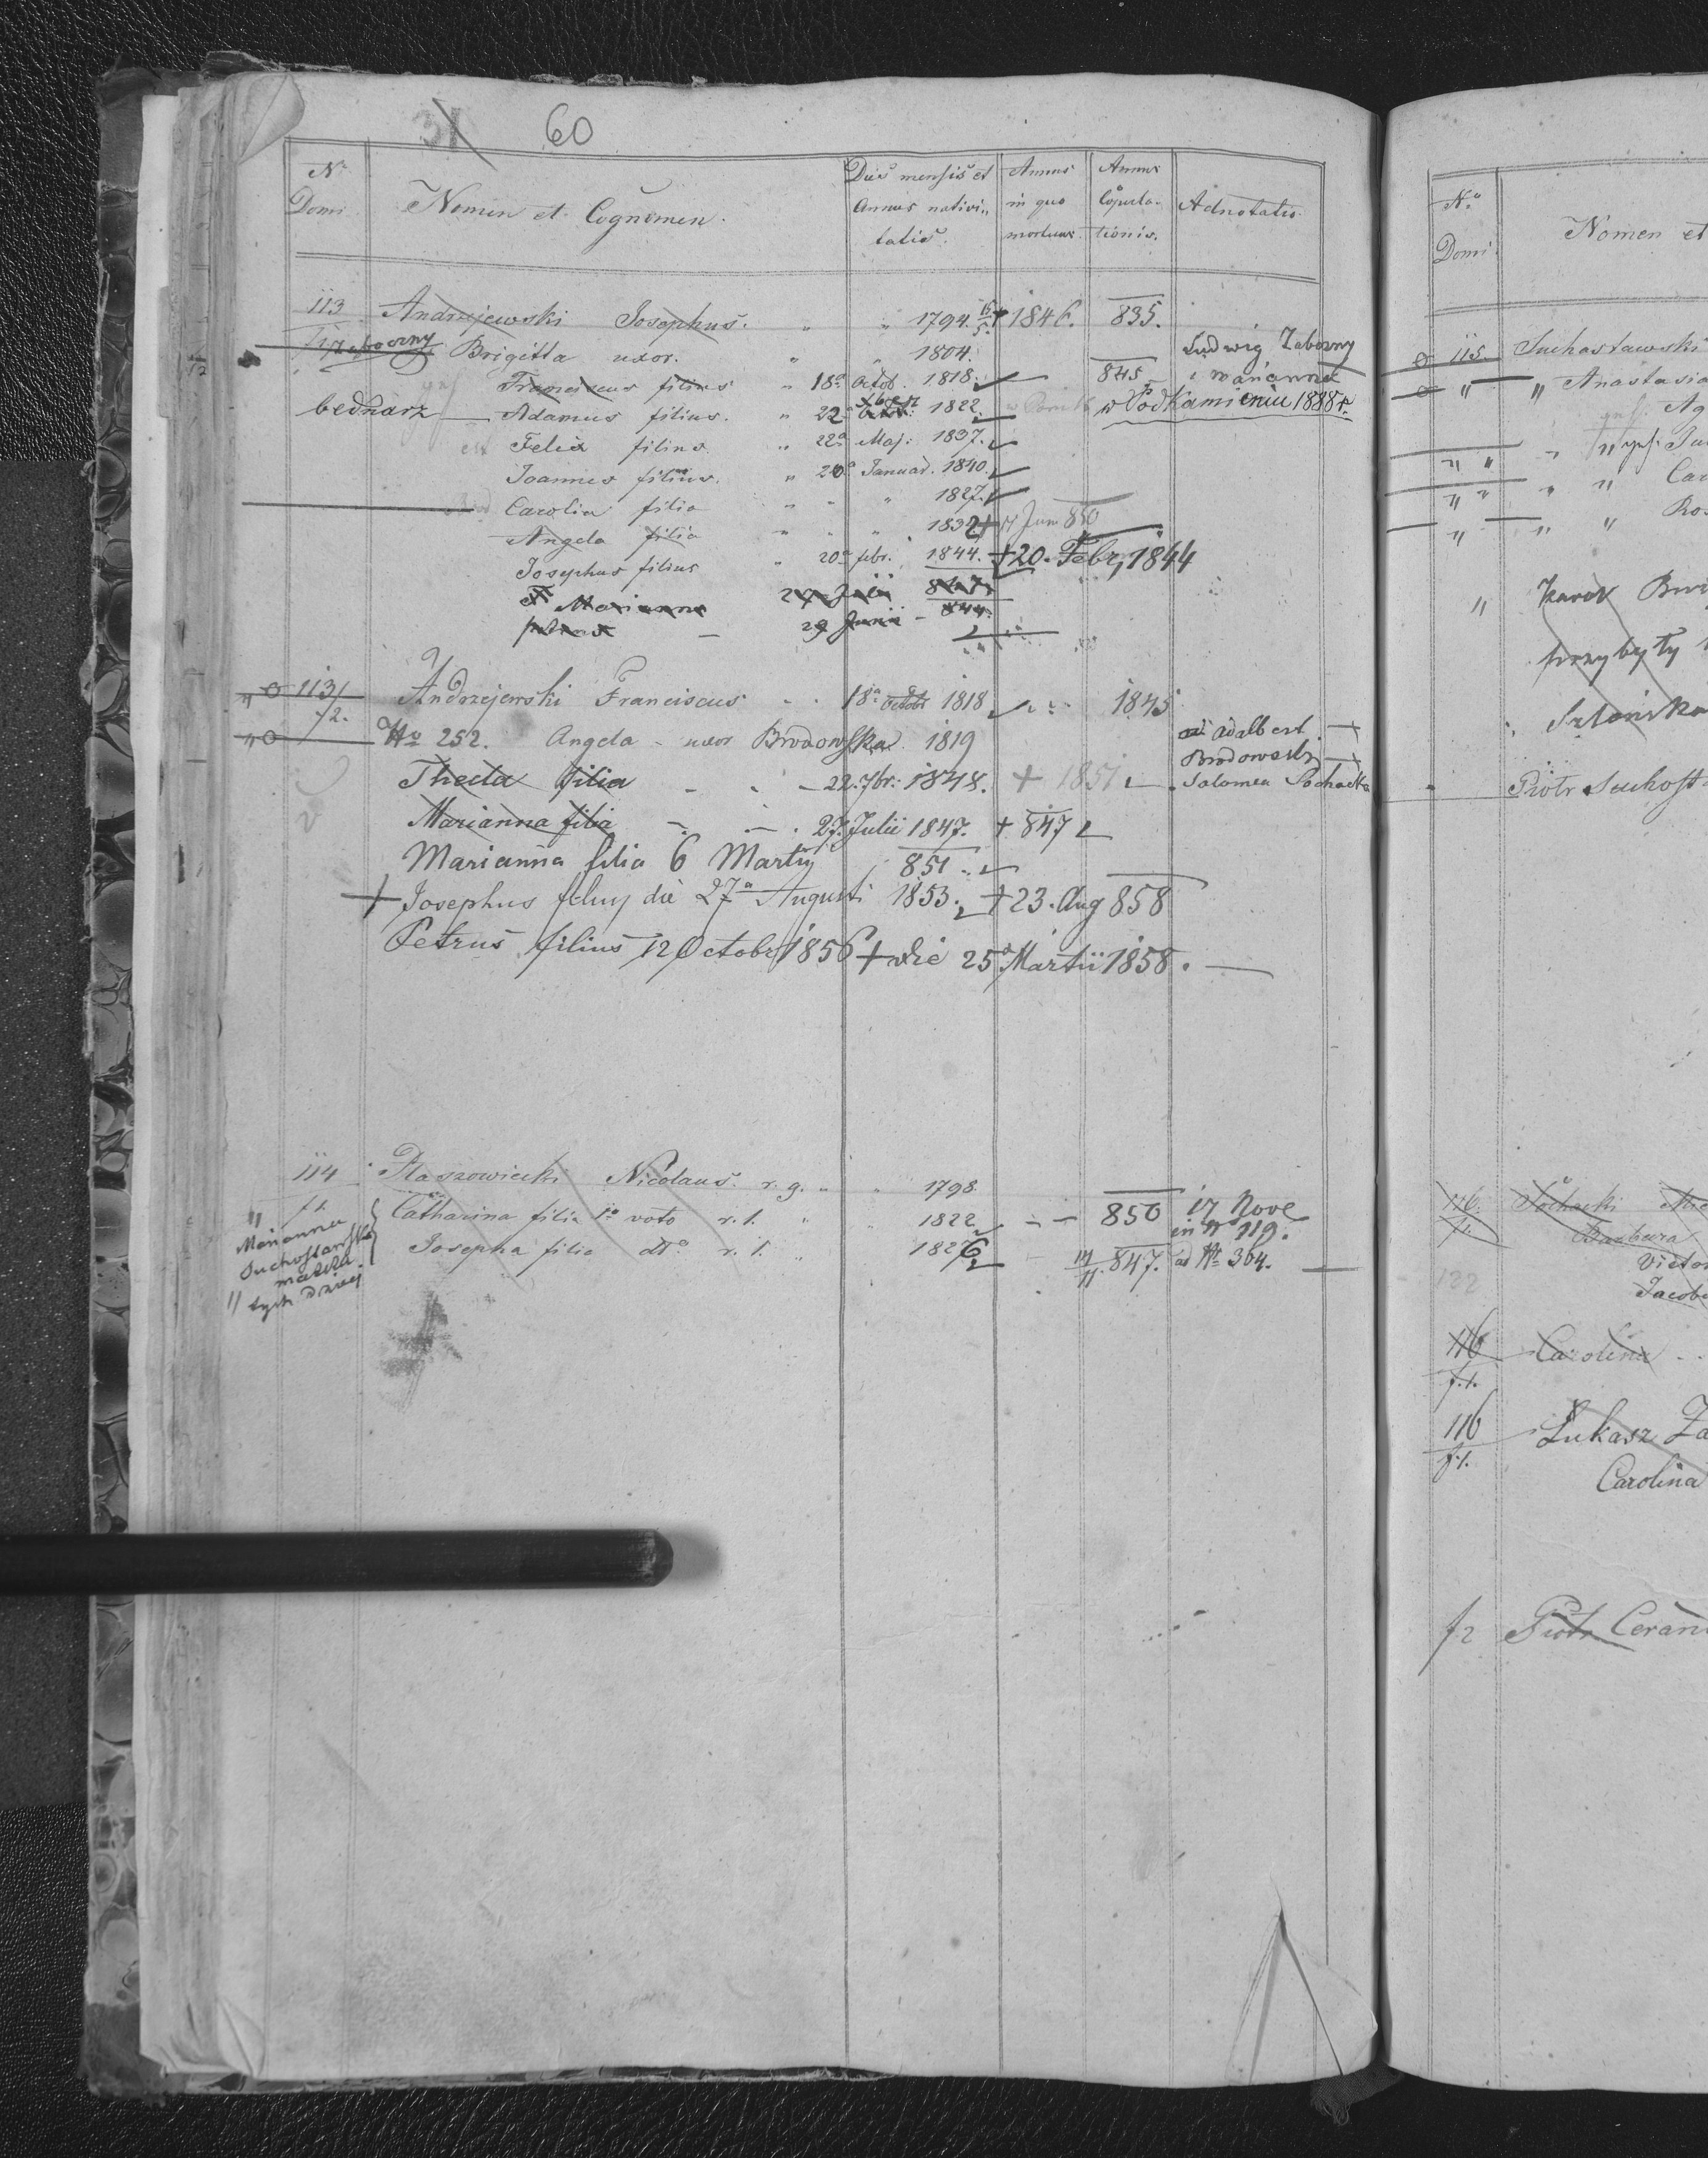 31 60
No Domi
Nomen et Cognomen.
Dies mensis et Annus nativitatis.
Annus in quo mortuus.
Annus Copulationis.
Adnotatio.
113 Andrzejewski Josephus. " " 1794. 15/5. + 1846. 835.
Zaborny Brigitta uxor. " " 1804. Ludwig Zaborny
Franciscus filius " 18a Octob. 1818. 845 i Marianna
bednarz Adamus filius. " 22a 1822. w Podkamieniu 1888 r.
Felix filius " 22a Maj: 1837.
Joannes filius. " 20a Januar. 1840.
Carolin filia " " " 1827.
Angela filia " " " 1832 + 17 Juni 850
Josephus filius " 20a febr. 1844. + 20. Febr, 1844
Marianna 27 Julii 847.
29 Junii - 844.
" 113/ f2. Andrzejewski Franciscus " " 18a Octobr 1818 " " 1845
" No 252. Angela - uxor Brodowska 1819 Adalbert
Brodowski
Thecla filia - - - 22. 7br: 1848. + 1851 Salomea Sochacka
Marianna filia - - . 27. Julii 1847. + 847
Marianna filia 6 Martij 851
+ Josephus filius die 27a Augusti 1853. + 23. Aug 858
Petrus filius 12 Octobr 1856 + die 25a Martii 1858.
114 Ptaszowiecki Nicolaus. r. g. " " 1798.
" f1. Catharina filia 1o voto r. l. " " 1822 - - 850 17 Nove
in No 119.
Josepha filia dto r. l. " 1826 11/11. 847. ad No 304.
Marianna
Suchosławska
matka
" tych dzieci
No Domi
Nomen et
115. Suchasławski
" " Anastasia
" " " Ju
" " " " Car
" " " Ros
" Karol
przybyły
Piotr Suchosł
116. f1. Sochacki
Barbara
Victor
122 Jacob
116 f.1. Carolina
116 f.1. Łukasz Za
Carolina
f2 Piotr Ceran